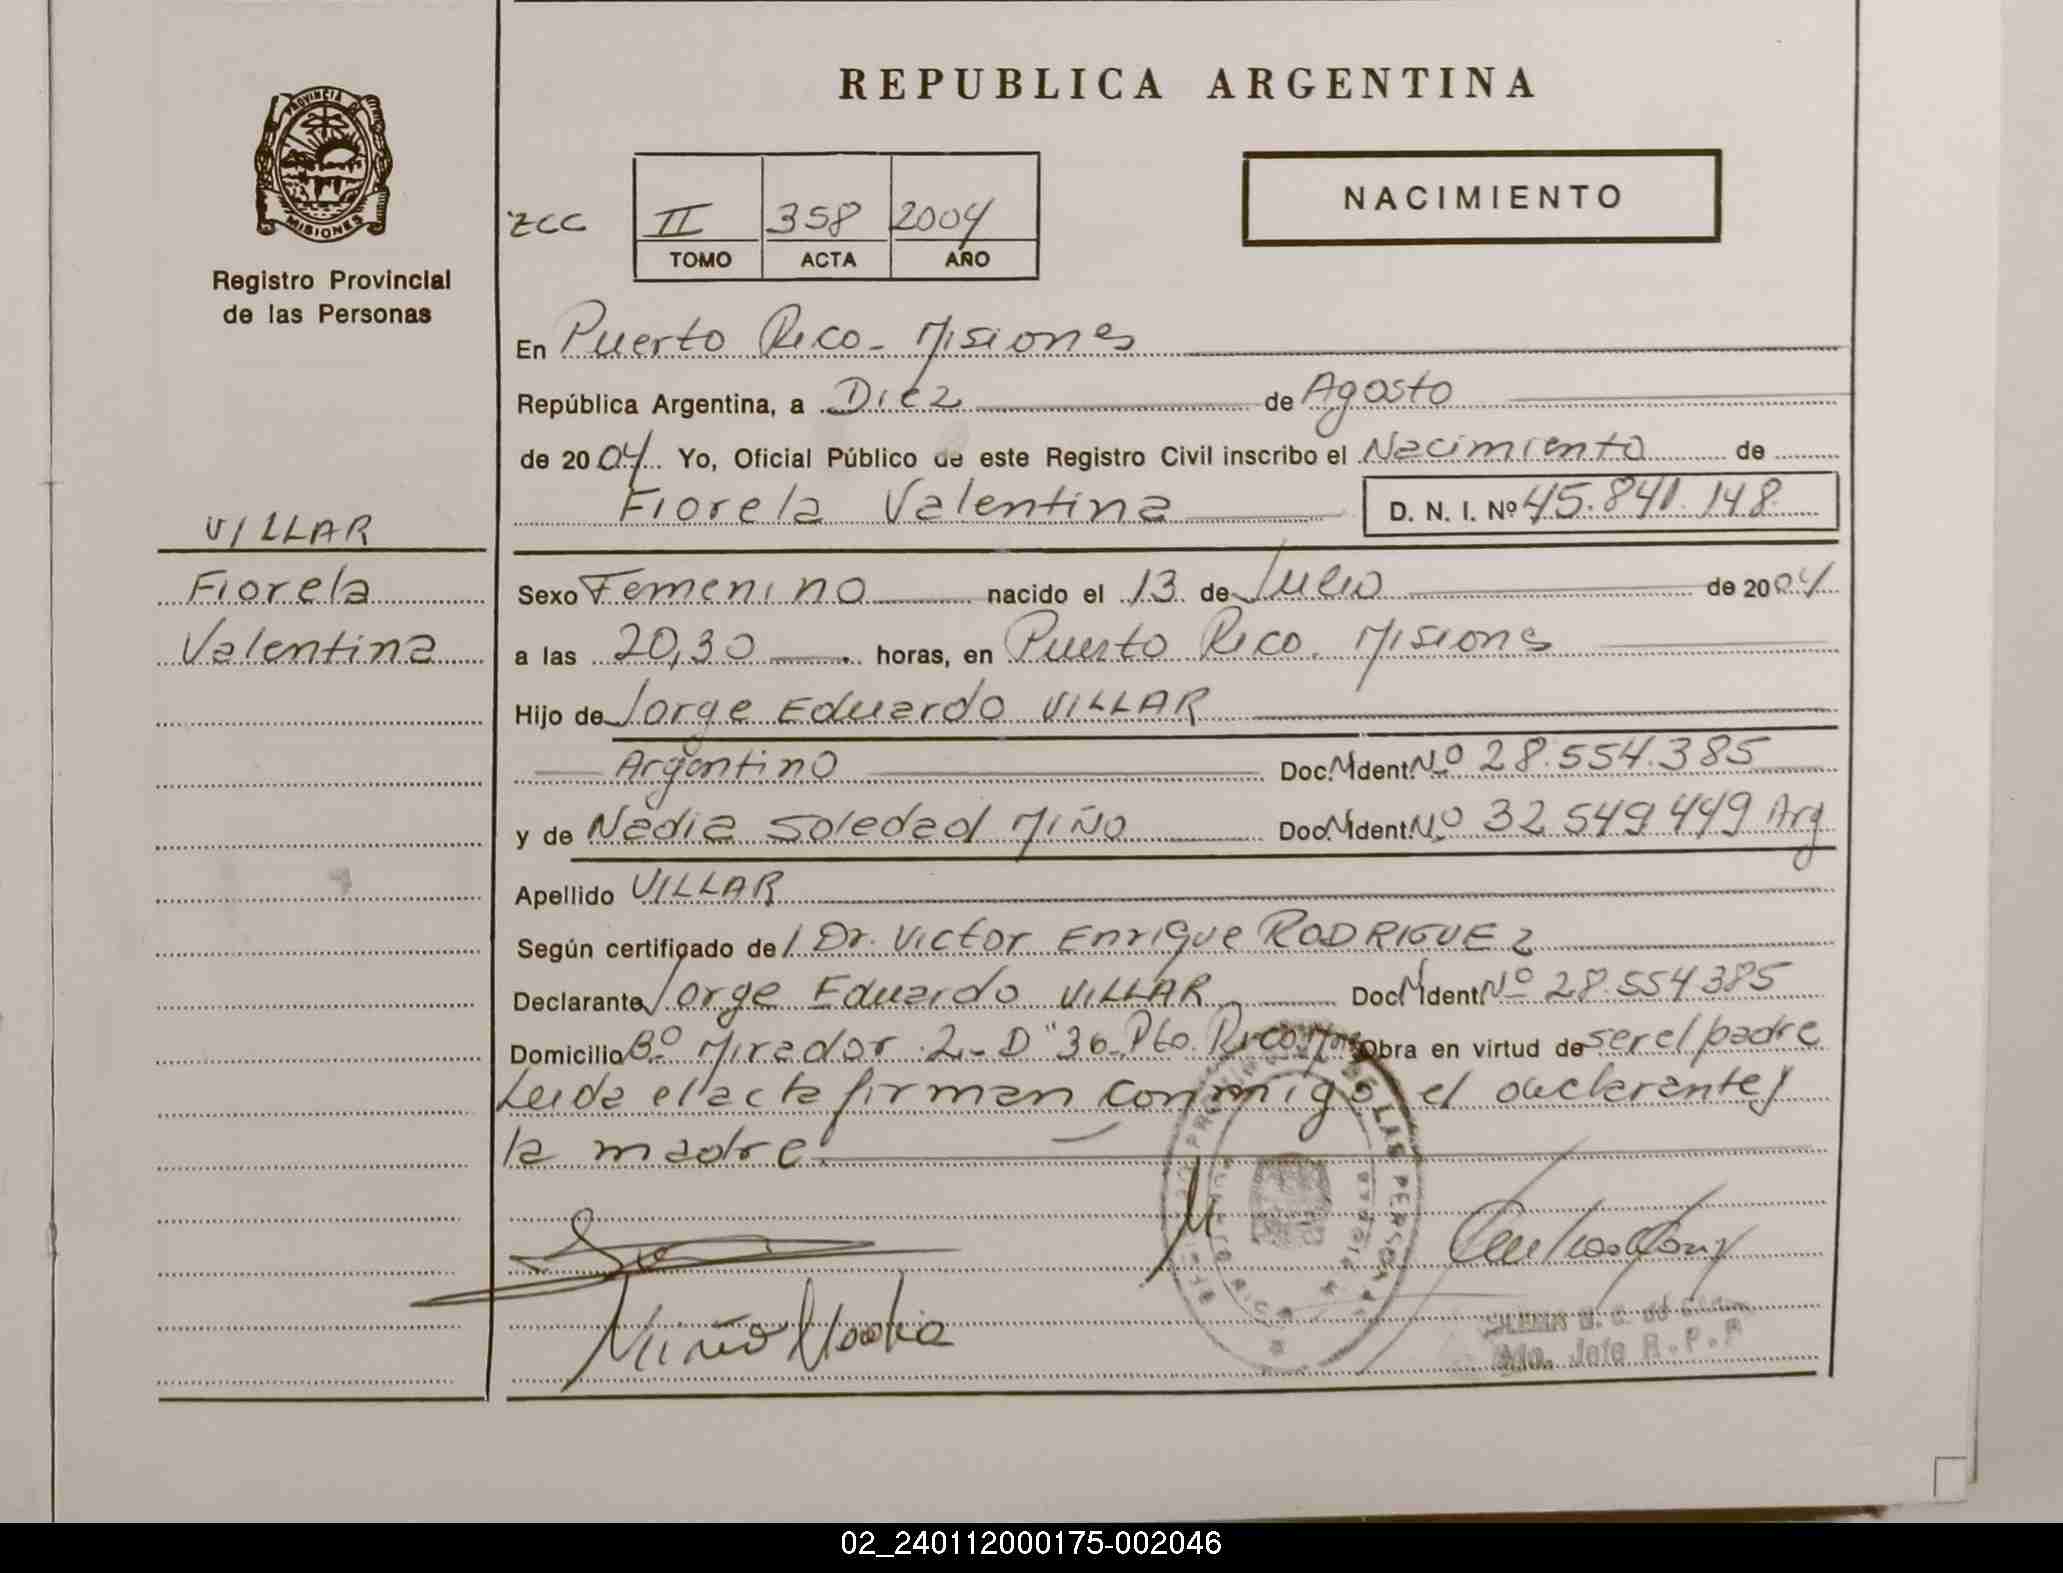 REPUBLICA ARGENTINA
PROVINCIA DE
MISIONES
Registro Provincial
de las Personas
ZCC II 358 2004
TOMO ACTA AÑO
NACIMIENTO
En Puerto Rico - Misiones
República Argentina, a Diez de Agosto
de 2004 Yo, Oficial Público de este Registro Civil inscribo el Nacimiento de
Fiorela Valentina D. N. I. Nº 45.841.148
VILLAR
Fiorela
Valentina
Sexo Femenino nacido el 13 de Julio de 2004
a las 20,30 horas, en Puerto Rico. Misiones
Hijo de Jorge Eduardo VILLAR
Argentino Doc. N Ident Nº 28.554.385
y de Nadia Soledad MIÑO Doc. N Ident Nº 32.549.449 Arg
Apellido VILLAR
Según certificado del Dr. Victor Enrique RODRIGUEZ
Declarante Jorge Eduardo VILLAR Doc N Ident Nº 28.554.385
Domicilio Bº Mirador 2 - D "36 - Pto. Rico. Mnes Obra en virtud de ser el padre
Leida el acta firman conmigo el declarante y
la madre.
LAS PERSONAS
Miño Nadia
Jefe R.P.P
02_240112000175-002046